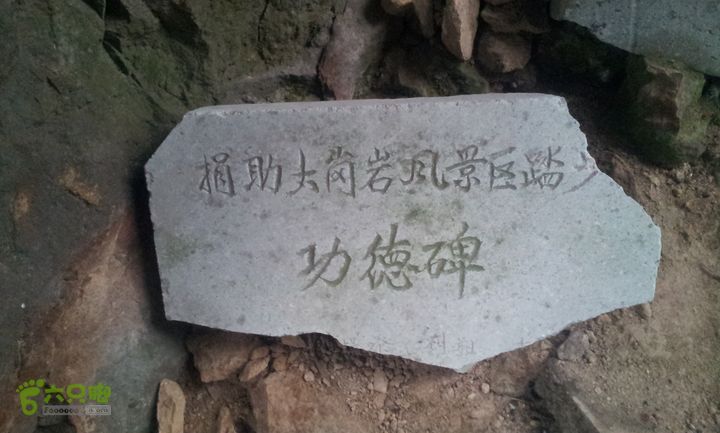 捐助大岗岩风景区踏步
功德碑
六只脚